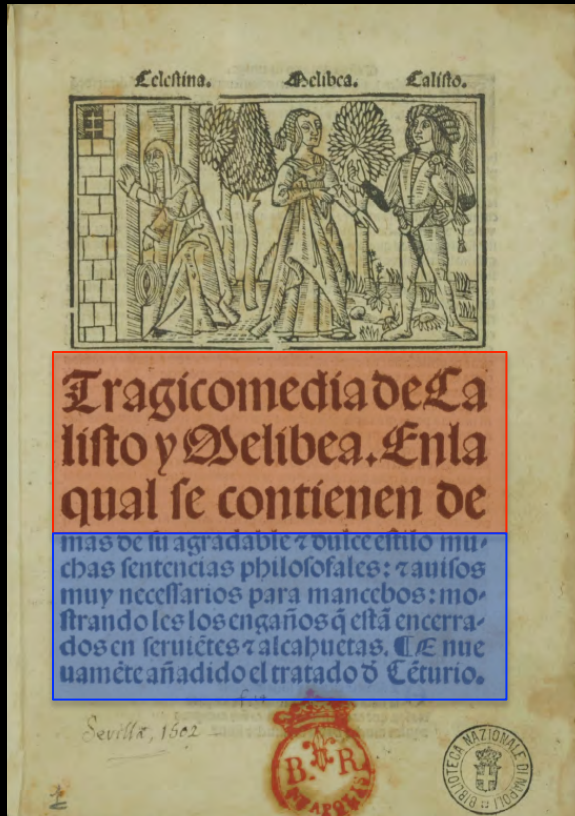 Celestina. Melibea. Calisto.
Tragicomedia de Ca
listo y Melibea. Enla
qual se contienen de
mas de su agradable ⁊ dulce estilo mu-
chas sentencias philosofales: ⁊ auisos
muy necessarios para mancebos: mo-
strando les los engaños q̄ estā encerra-
dos en seruiētes ⁊ alcahuetas. ¶ E nue
uamēte añadido el tratado d̄ Cēturio.
Sevilla, 1502
B. R.
NEAPOLIS
BIBLIOTECA NAZIONALE DI NAPOLI